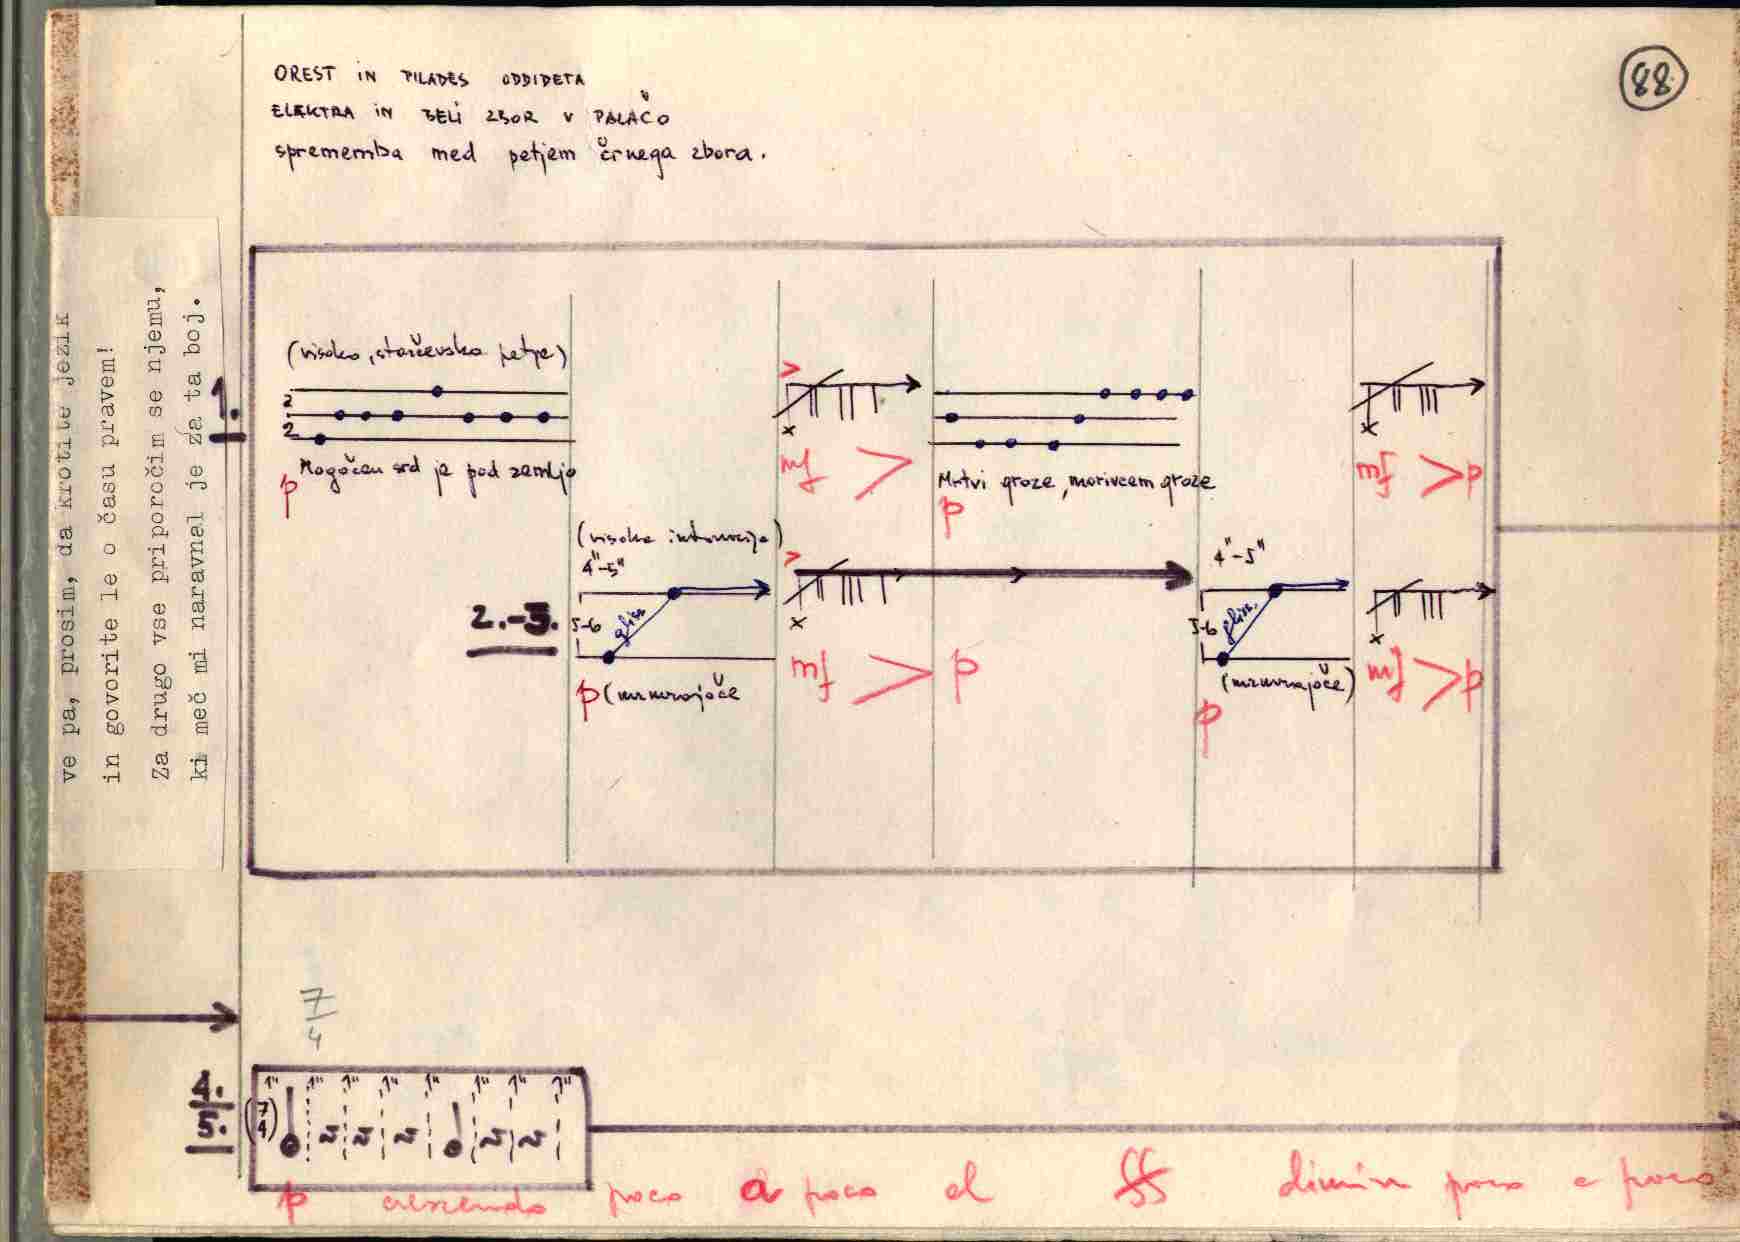 88
OREST IN PILADES ODDIDETA
ELEKTRA IN BELI ZBOR V PALAČO
sprememba med petjem črnega zbora.
ve pa, prosim, da krotite jezik
in govorite le o času pravem!
Za drugo vse priporočim se njemu,
ki meč mi naravnal je za ta boj.
1.
(visoko, starčevsko petje)
2
2
p
Mogočen srd je pod zemljo
> mf >
Mrtvi groze, morivcem groze
p
mf > p
2.-3.
(visoka intonacija)
4"-5"
5-6
glis.
p (mrmrajoče
> mf > p
4"-5"
5-6
glis.
(mrmrajoče)
p
mf > p
7/4
4.
5.
(7/4)
1" 1" 1" 1" 1" 1" 1" 1"
p crescendo poco a poco al ff dimin poco a poco